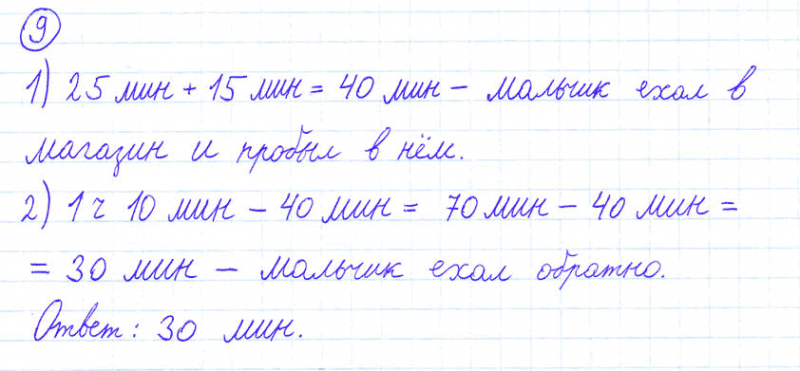 9
1) 25 мин + 15 мин = 40 мин – мальчик ехал в
магазин и пробыл в нём.
2) 1 ч 10 мин – 40 мин = 70 мин – 40 мин =
= 30 мин – мальчик ехал обратно.
Ответ: 30 мин.